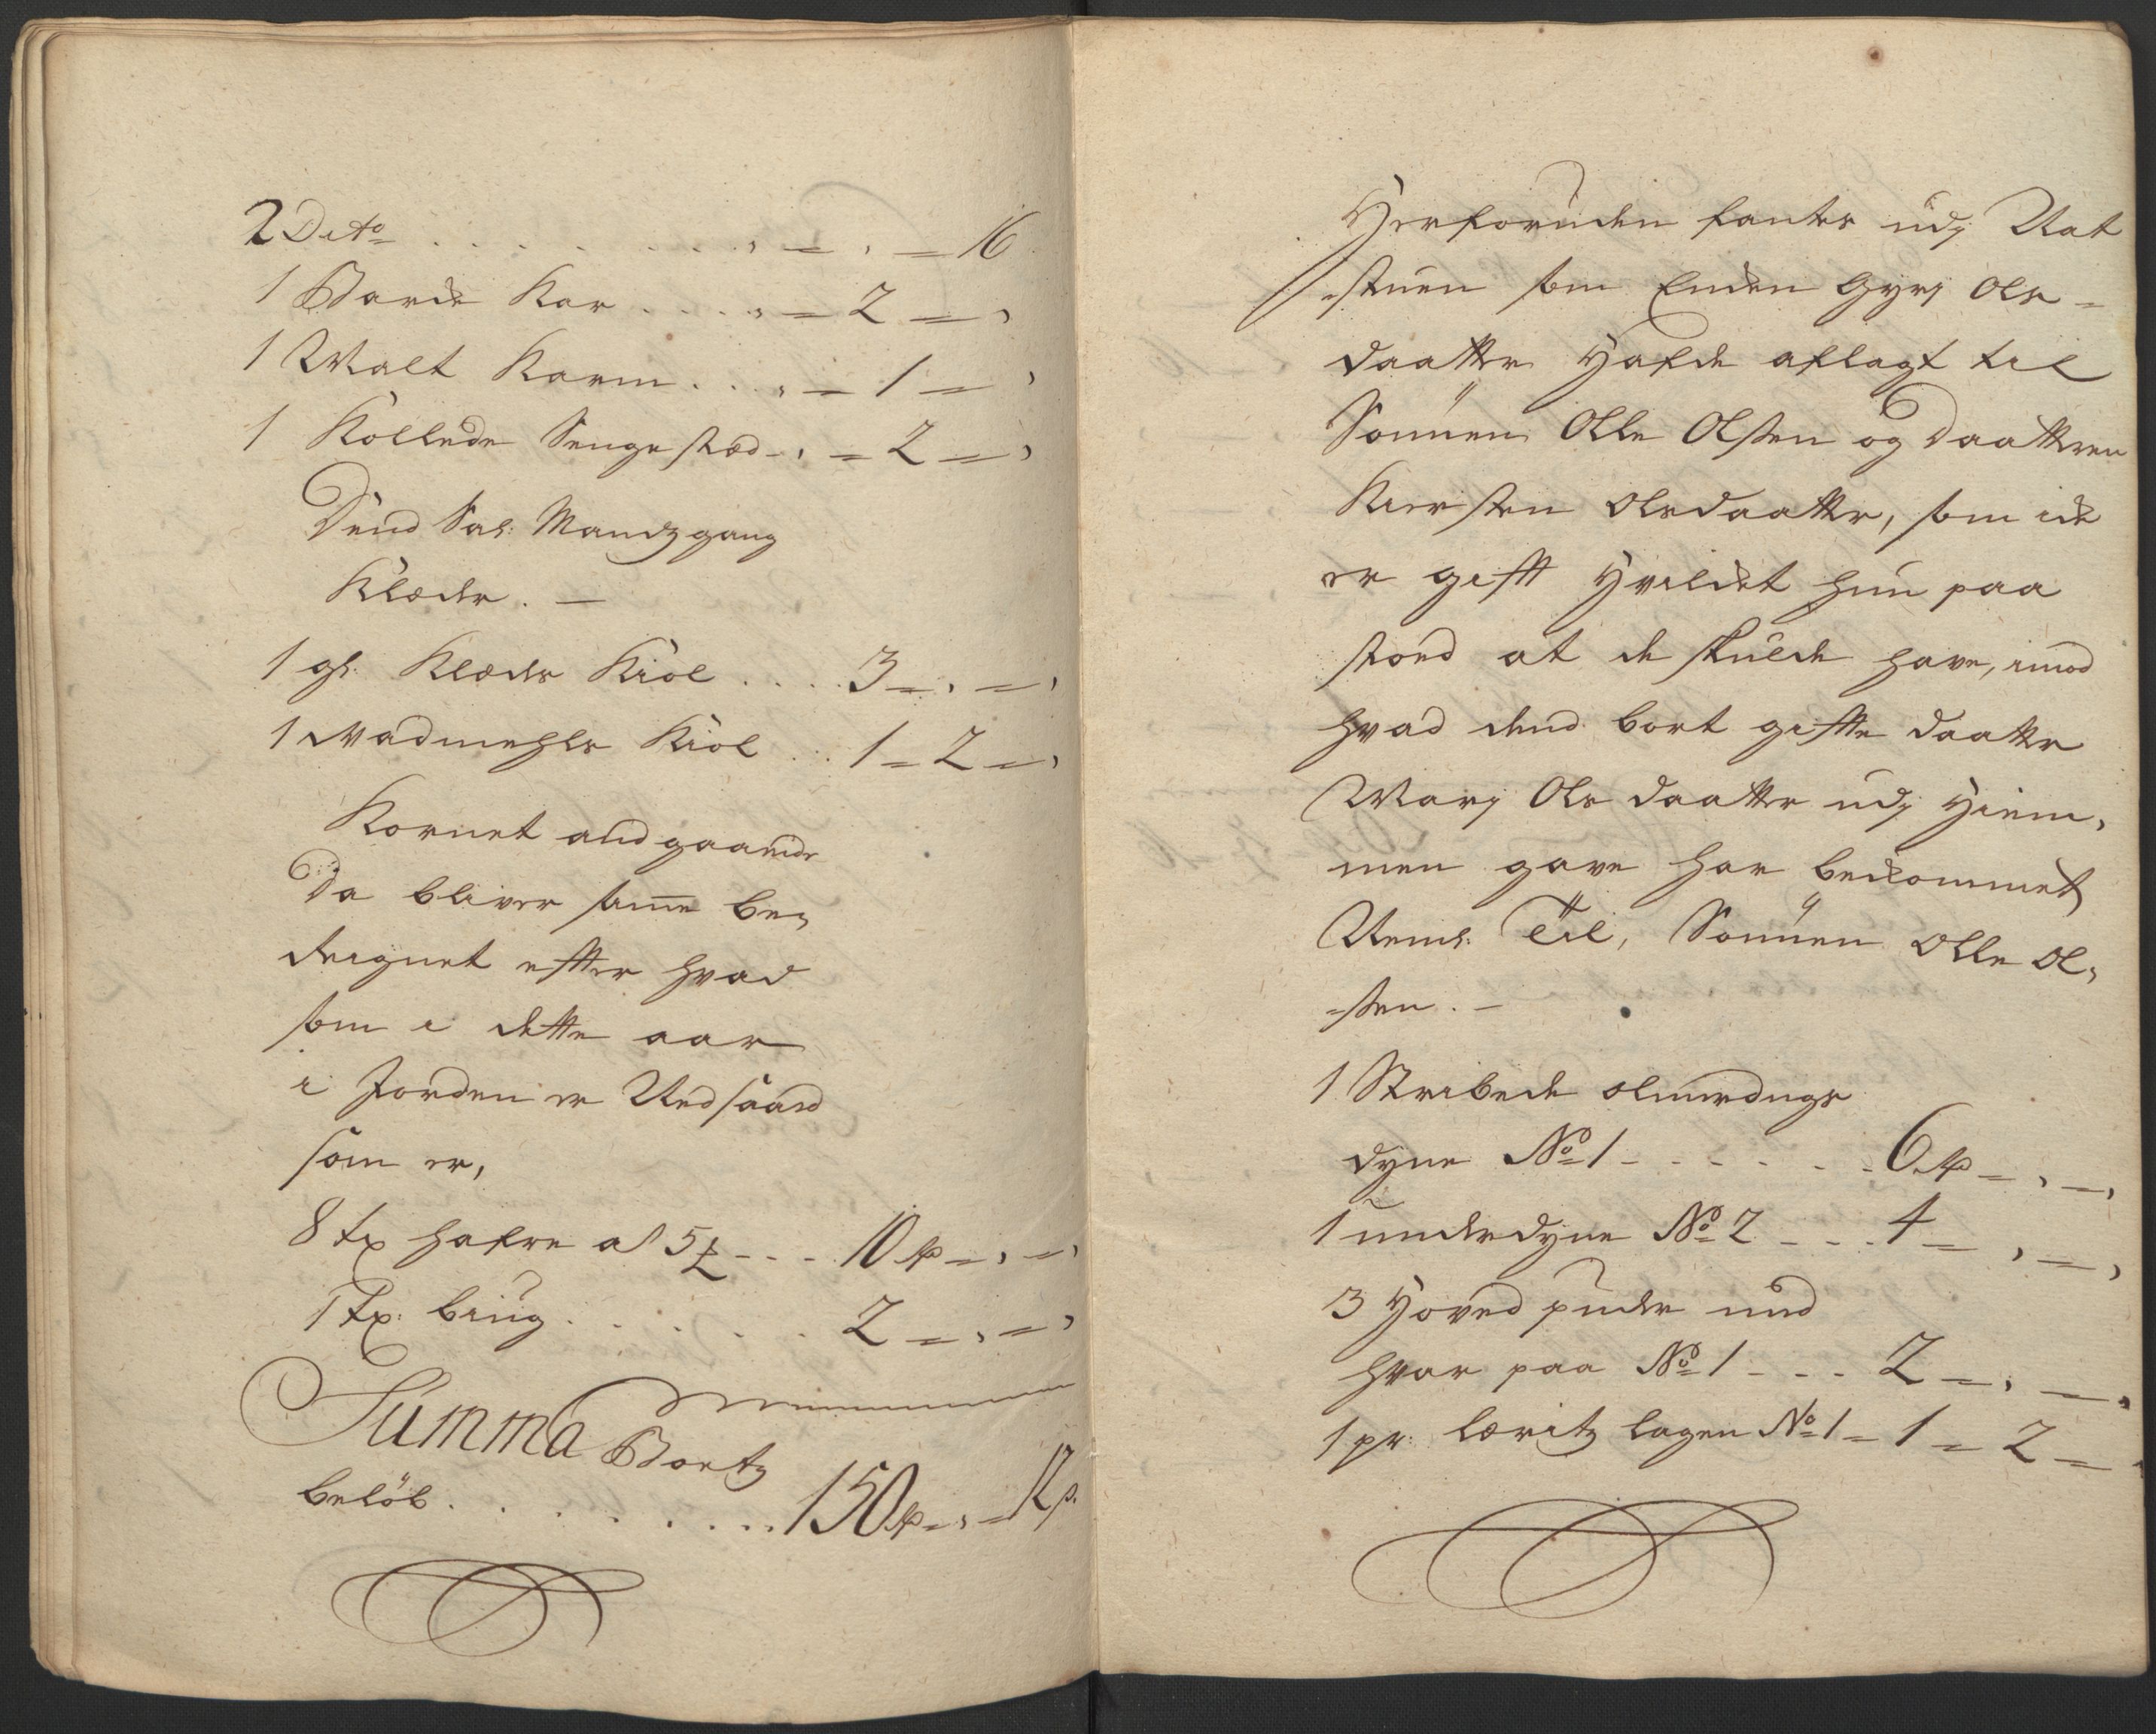 2 Dito . . . . . . . . , = , = 16
1 Barde Kar . . . . , = 2 = ,
1 Malt Karm . . . , = 1 = ,
1 Kollede Sengested - , = 2 = ,
Dend Sal: Mandz gang
Klæder. —
1 gl: Klædes Kiol . . . . 3 = , = ,
1 Wadmehls Kiol . . 1 = 2 = ,
Kornet andgaaende
Da bliver samme be,
deignet efter hvad
som i dette aar
i Jorden er Nedsaaed
som er,
8 tr hafre a 5 . . . 10 rd = , = ,
1 tr: biug . . . . . . 2 = , = ,
Summa Bortz
beløb . . . . . . . 150 rd = , = 12 s.
Herforuden fantes udj Rat
stuen som Enden Gyrj Ols =
daatter hafde aflagt til
Sönnen Olle Olsen og Daatteren
Kiersten Olsdaatter, som ide
er gift hvildet hun paa
stoed at de skulde have, imod
hvad dend bort gifte daatter
Marj Ols daatter udj Hiem,
men gave har bekommet
Neml: Til, Sönnen Olle Ol,
=sen. —
1 Stribede olmerdugs
dyne No 1 - - - - - - 6 rd = , = ,
1 underdyne No 2 - - . 4 = , = ,
3 Hoved puder und
hvar paa No 1 - - - 2 = , = ,
1 pr: læritz lagen No 1 = 1 = 2 = ,